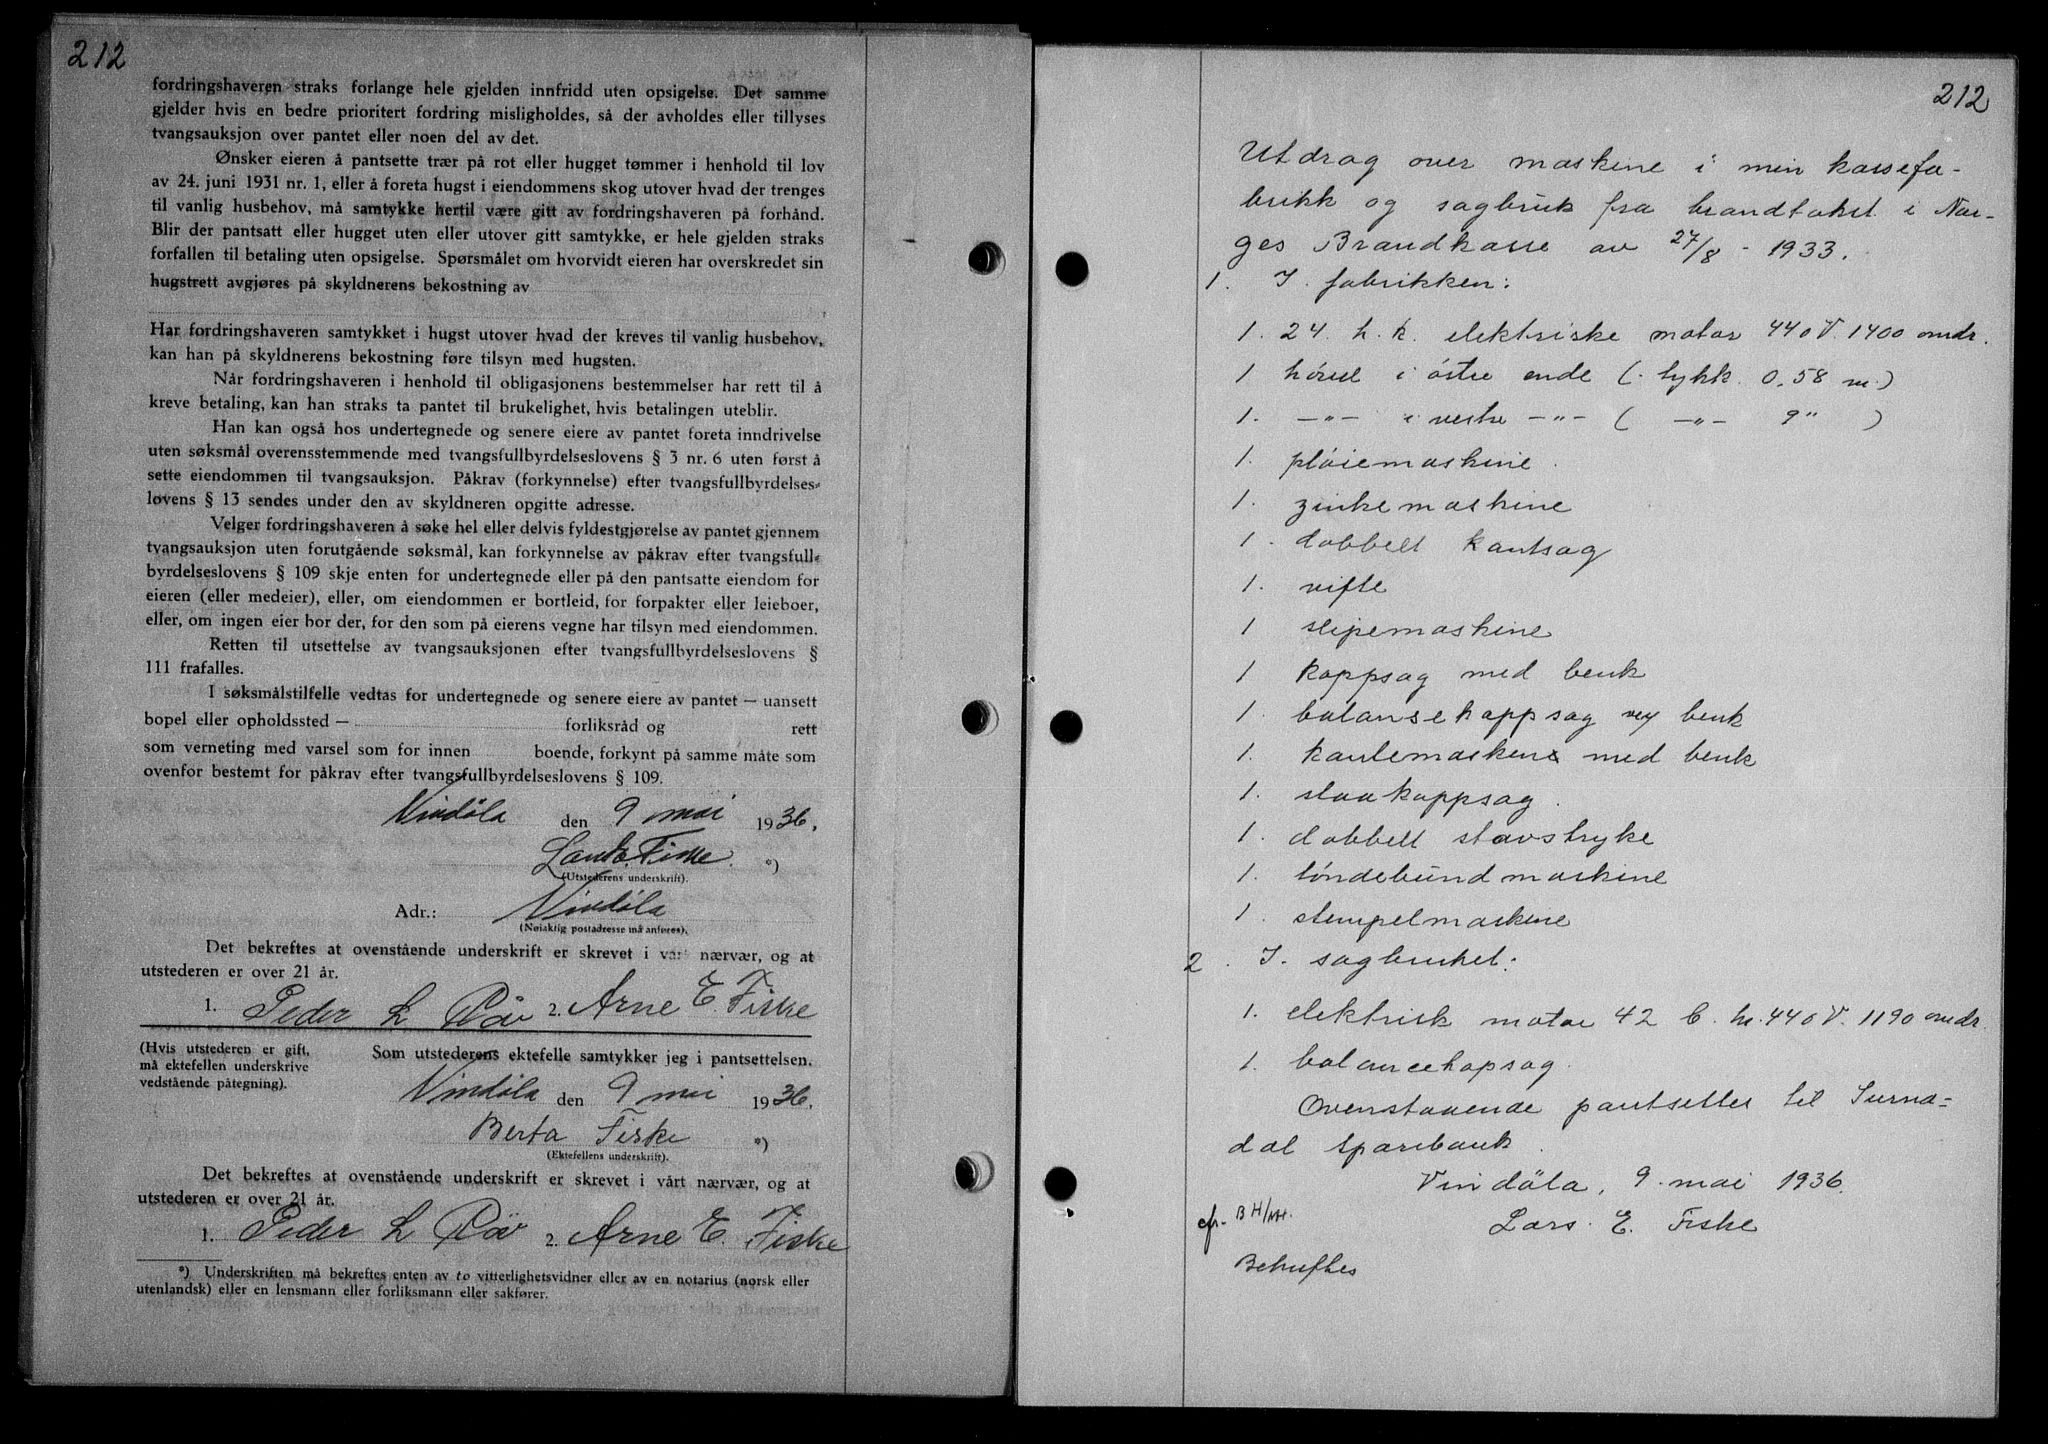 212
fordringshaveren straks forlange hele gjelden innfridd uten opsigelse. Det samme
gjelder hvis en bedre prioritert fordring misligholdes, så der avholdes eller tillyses
tvangsauksjon over pantet eller noen del av det.
Ønsker eieren å pantsette trær på rot eller hugget tømmer i henhold til lov
av 24. juni 1931 nr. 1, eller å foreta hugst i eiendommens skog utover hvad der trenges
til vanlig husbehov, må samtykke hertil være gitt av fordringshaveren på forhånd.
Blir der pantsatt eller hugget uten eller utover gitt samtykke, er hele gjelden straks
forfallen til betaling uten opsigelse. Spørsmålet om hvorvidt eieren har overskredet sin
hugstrett avgjøres på skyldnerens bekostning av
Har fordringshaveren samtykket i hugst utover hvad der kreves til vanlig husbehov,
kan han på skyldnerens bekostning føre tilsyn med hugsten.
Når fordringshaveren i henhold til obligasjonens bestemmelser har rett til å
kreve betaling, kan han straks ta pantet til brukelighet, hvis betalingen uteblir.
Han kan også hos undertegnede og senere eiere av pantet foreta inndrivelse
uten søksmål overensstemmende med tvangsfullbyrdelseslovens § 3 nr. 6 uten først å
sette eiendommen til tvangsauksjon. Påkrav (forkynnelse) efter tvangsfullbyrdelses-
lovens § 13 sendes under den av skyldneren opgitte adresse.
Velger fordringshaveren å søke hel eller delvis fyldestgjørelse av pantet gjennem
tvangsauksjon uten forutgående søksmål, kan forkynnelse av påkrav efter tvangsfull-
byrdelseslovens § 109 skje enten for undertegnede eller på den pantsatte eiendom for
eieren (eller medeier), eller, om eiendommen er bortleid, for forpakter eller leieboer,
eller, om ingen eier bor der, for den som på eierens vegne har tilsyn med eiendommen.
Retten til utsettelse av tvangsauksjonen efter tvangsfullbyrdelseslovens §
111 frafalles.
I søksmålstilfelle vedtas for undertegnede og senere eiere av pantet — uansett
bopel eller opholdssted — forliksråd og rett
som verneting med varsel som for innen boende, forkynt på samme måte som
ovenfor bestemt for påkrav efter tvangsfullbyrdelseslovens § 109.
Vindöla den 9 mai 1936.
Fiske. *)
(Utstederens underskrift).
Adr.: Vindöla
(Nøiaktig postadresse må anføres).
Det bekreftes at ovenstående underskrift er skrevet i vårt nærvær, og at
utstederen er over 21 år.
1. Peder L Röv 2. Arne E. Fiske
(Hvis utstederen er gift,
må ektefellen underskrive
vedstående påtegning).
Som utstederens ektefelle samtykker jeg i pantsettelsen.
Vindöla den 9 mai 1936.
Berta Fiske *)
(Ektefellens underskrift).
Det bekreftes at ovenstående underskrift er skrevet i vårt nærvær, og at
utstederen er over 21 år.
1. Peder L Röv 2. Arne E. Fiske
*) Underskriften må bekreftes enten av to vitterlighetsvidner eller av en notarius (norsk eller
utenlandsk) eller en lensmann eller forliksmann eller sakfører.
212
Utdrag over maskine i min kassefa-
brikk og sagbruk fra brandtakst i Nor-
ges Brandkasse av 27/8 - 1933.
1. I. fabrikken:
1. 24. h.k. elektriske motor 440 V. 1400 omdr.
1 hövel i östre ende (. tykk. 0,58 m.)
1. -"- i vestre -"- ( -"- 9" )
1. plöiemaskine.
1. zinkemaskine
1. dobbelt kantsag
1. vifte
1 slipemaskine
1 kappsag med benk
1. balansekappsag m/ benk
1. kantemaskine med benk
1. stavkappsag.
1. dobbelt stavstryke
1. töndebundmaskine
1. stempelmaskine
2. I. sagbruket:
1. elektrisk motor 42 h. k. 440 V. 1190 omdr.
1. balancekapsag.
Ovenstaaende pantsettes til Surna-
dal Sparebank.
Vindöla, 9. mai 1936.
Lars. E. Fiske
cfr. BH/
Bekreftes